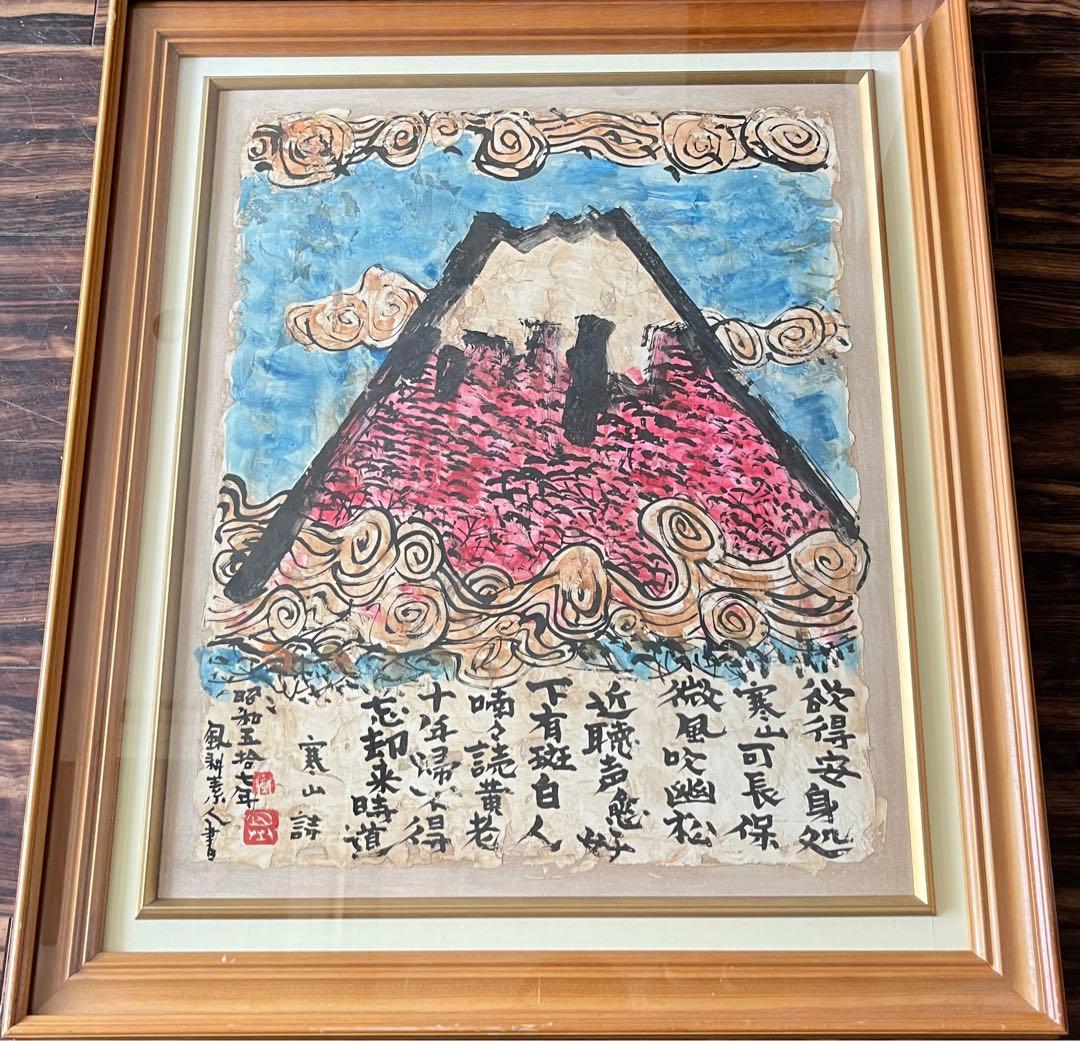 欲得安身処
寒山可長保
微風吹幽松
近聴声愈好
下有斑白人
喃々読黄老
十年帰不得
忘却来時道
寒山詩
昭和五拾七年
素人書